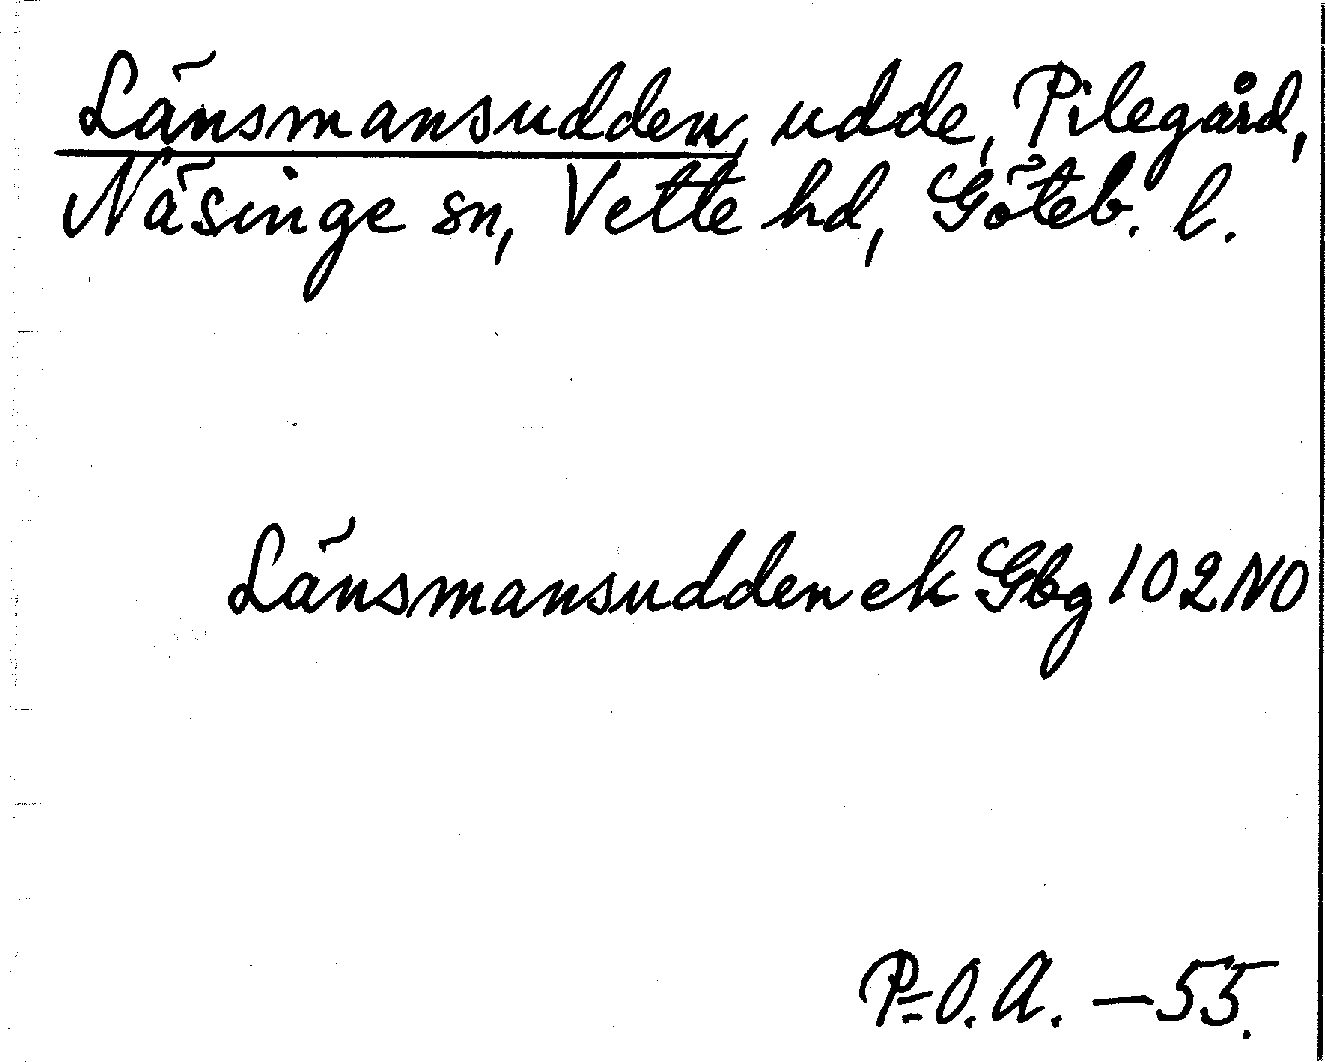 Länsmansudden, udde, Pilegård,
Näsinge sn, Vette hd, Göteb. l.
Länsmansudden ek Gbg 102 NO
P-O. A. - 55.